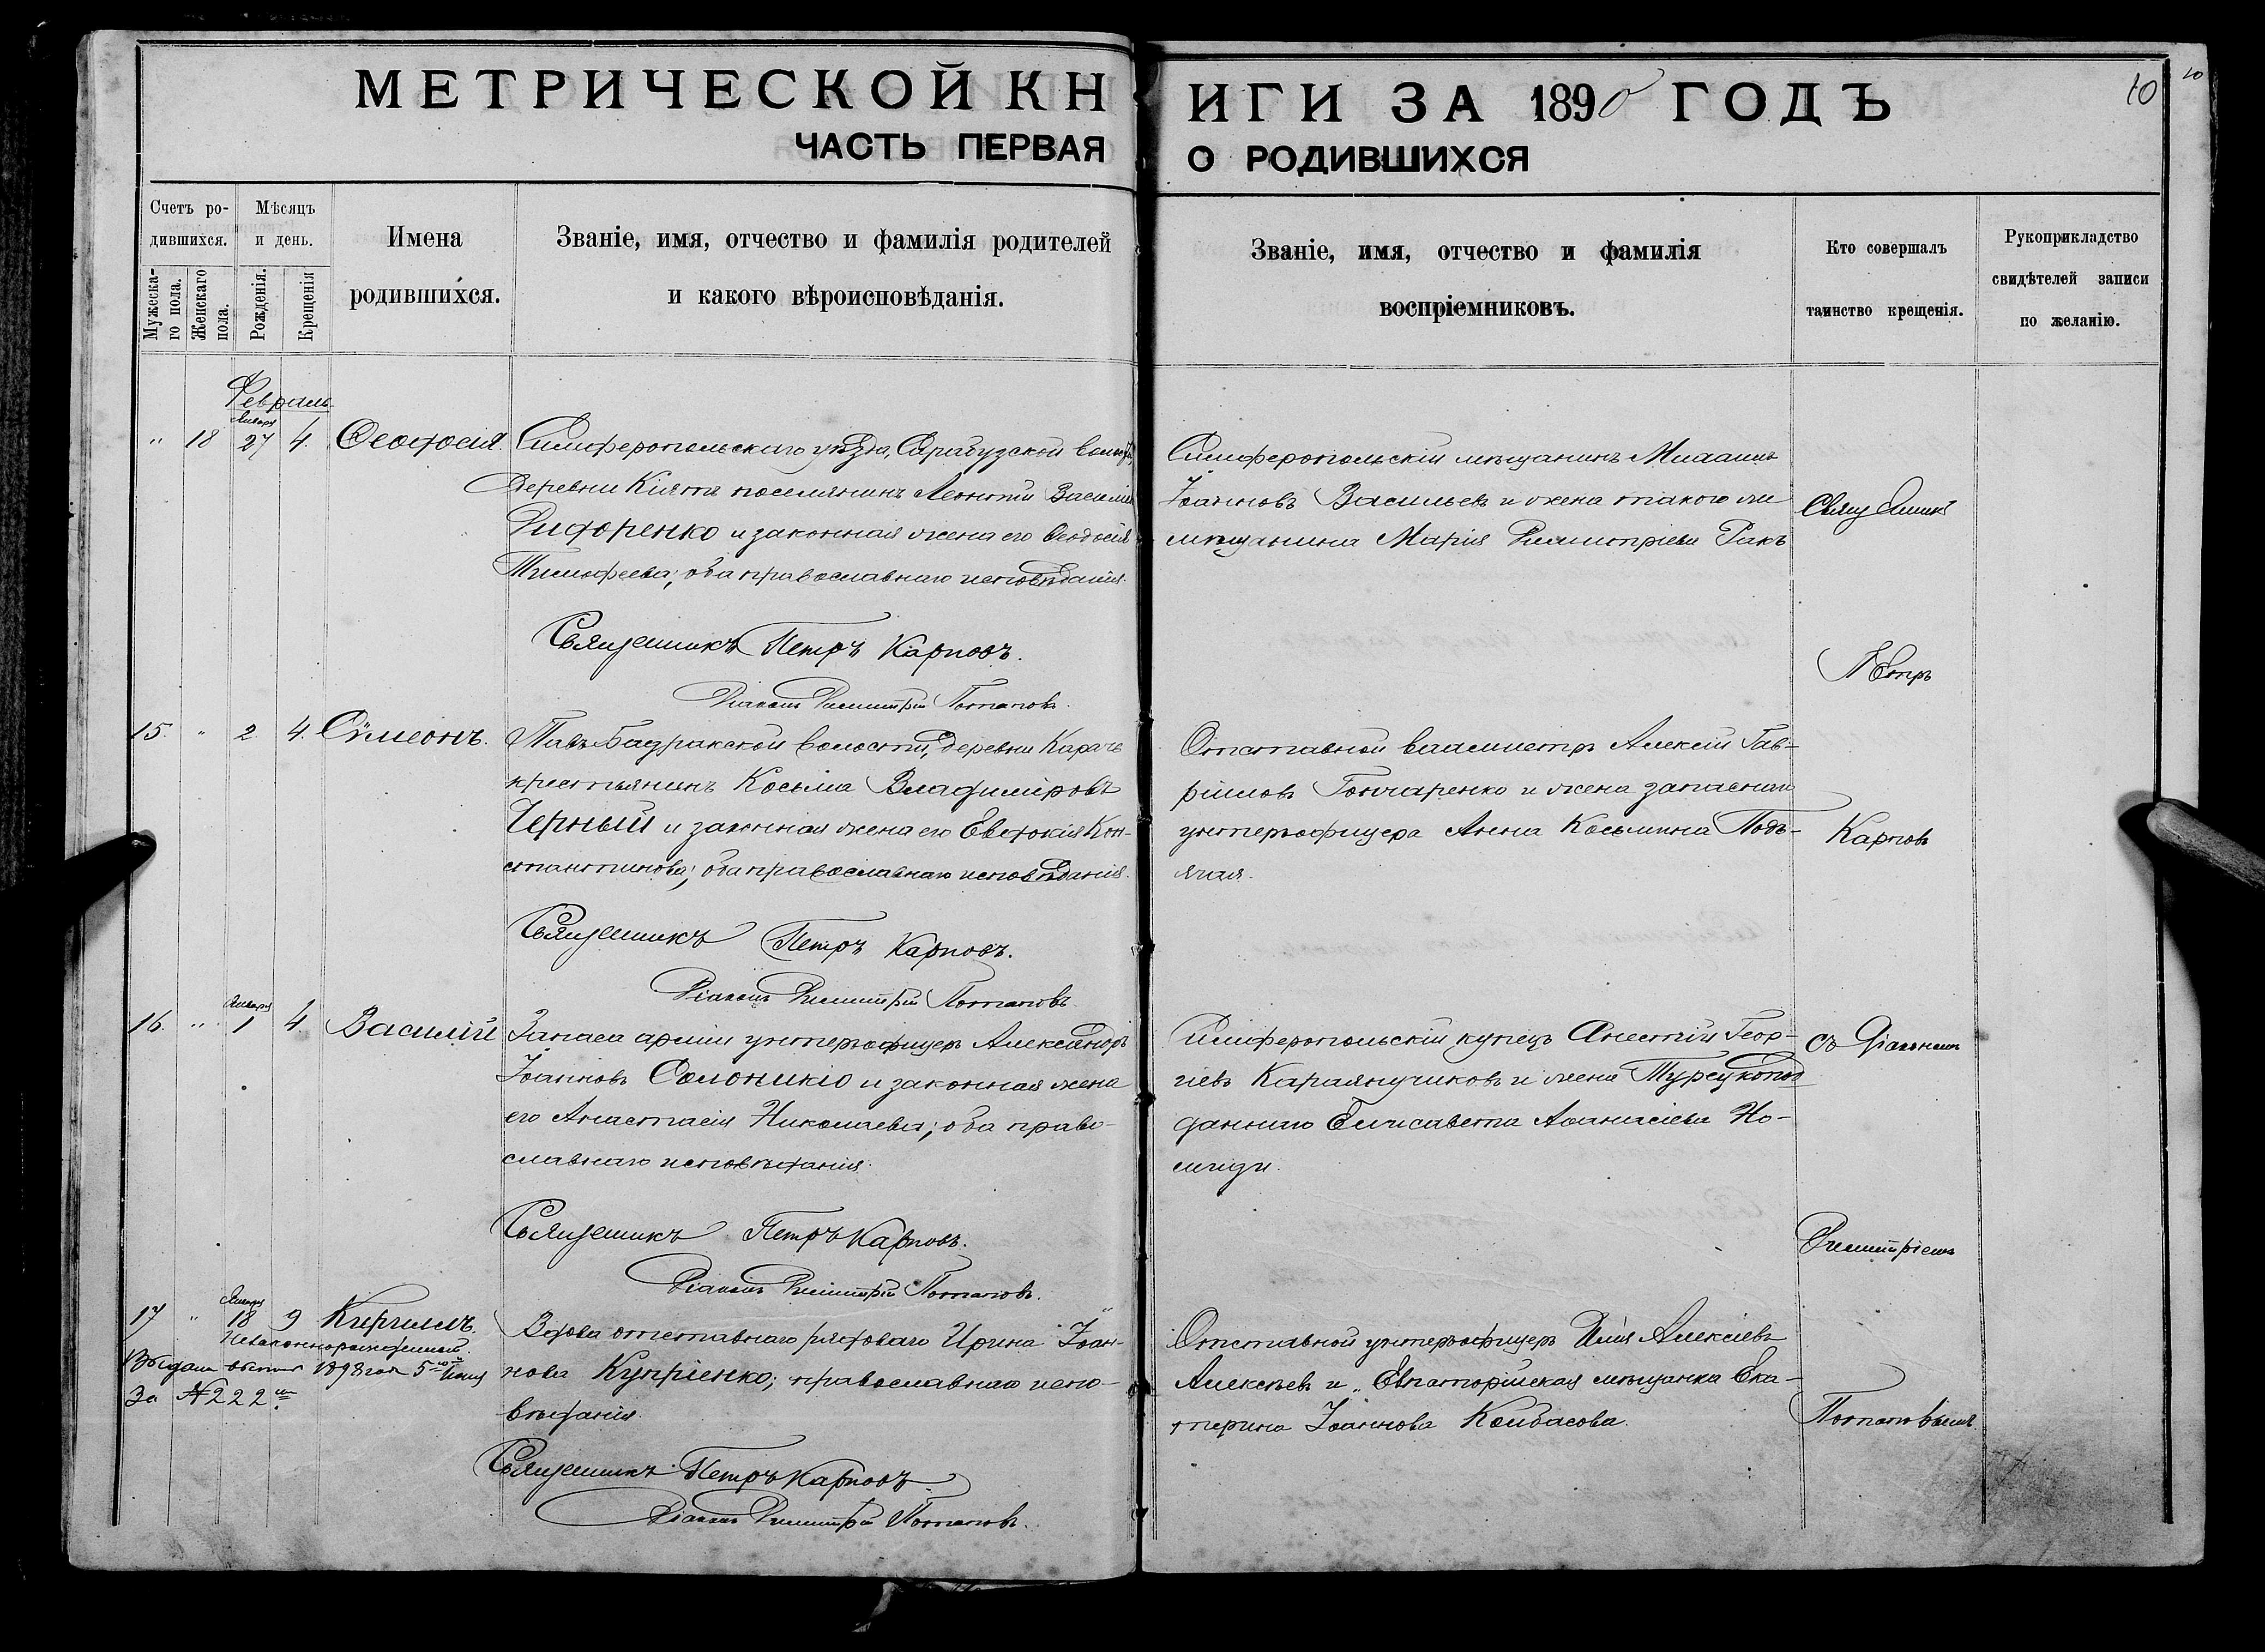 МЕТРИЧЕСКОЙ КНИГИ ЗА 1890 ГОДЪ
10
10
ЧАСТЬ ПЕРВАЯ О РОДИВШИХСЯ
Счетъ ро-
дившихся.
Мужеска-
го пола.
Женскаго
пола.
Мѣсяцъ
и день.
Рожденія.
Крещенія
Имена
родившихся.
Званіе, имя, отчество и фамилія родителей
и какого вѣроисповѣданія.
Званіе, имя, отчество и фамилія
воспріемниковъ.
Кто совершалъ
таинство крещенія.
Рукоприкладство
свидѣтелей записи
по желанію.
Февраль
Января
" 18 27 4. Ѳеодосія.
Симферопольскаго уѣзда, Сарабузской волости,
деревни Кіятъ поселянинъ Леонтій Василіевъ
Дидоренко и законная жена его Ѳеодосія
Тимоѳеева; оба православнаго исповѣданія.
Священникъ Петръ Карповъ.
Діаконъ Димитрій Потаповъ.
Симферопольскій мѣщанинъ Михаилъ
Іоанновъ Васильевъ и жена такого же
мѣщанина Марія Димитріева Ракъ
15. " 2 4. Сѵмеонъ.
Табъ-Бадракской волости, деревни Карачъ
крестьянинъ Косьма Владиміровъ
Черный и законная жена его Евдокія Кон-
стантинова; оба православнаго исповѣданія.
Священникъ Петръ Карповъ.
Діаконъ Димитрій Потаповъ
Отставной вахмистръ Алексій Гав-
ріиловъ Гончаренко и жена запаснаго
унтеръ-офицера Анна Косьмина Подъ-
ячая.
Января
16. " 1 4 Василій
Запаса арміи унтеръ-офицеръ Александръ
Іоанновъ Солоникіо и законная жена
его Анастасія Николаева; оба право-
славнаго исповѣданія.
Священникъ Петръ Карповъ.
Діаконъ Димитрій Потаповъ.
Симферопольскій купецъ Анестій Геор-
гіевъ Караянучиковъ и жена Турецкопод
даннаго Елисавета Аѳанасіева Но-
миди.
Января
17 " 18 9 Кириллъ.
Незаконнорожденный.
Выдана 1898 года 5го Іюня
За № 222м.
Вдова отставнаго рядоваго Ирина Іоан-
нова Купріенко; православнаго испо-
вѣданія.
Священникъ Петръ Карповъ.
Діаконъ Димитрій Потаповъ.
Отставной унтеръ-офицеръ Илія Алексіевъ
Алексѣевъ и Евпаторійская мѣщанка Ека-
терина Іоаннова Колбасова.
Священникъ
Петръ
Карповъ
съ Діакономъ
Димитріемъ
Потаповымъ.